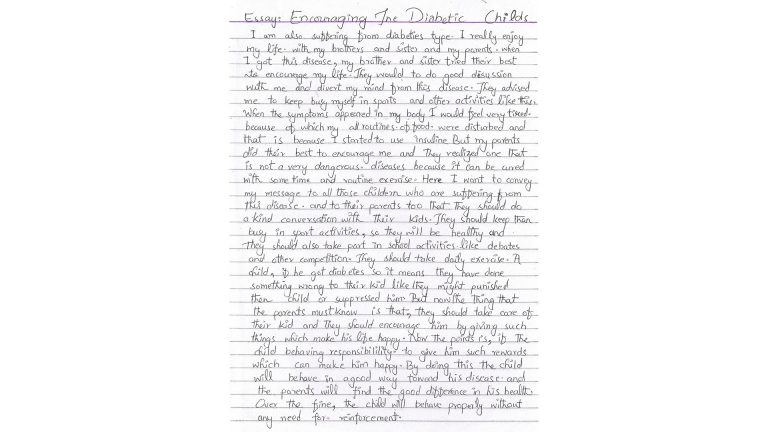 Essay: Encouraging The Diabetic Childs
I am also suffering from diabeties type. I really enjoy
my life. with my brothers and sister and my parents. when
I got this disease, my brother and sister tried their best
to encourage my life. They would to do good disussion
with me and divert my mind from this disease. They advised
me to keep busy myself in sports and other activities like this.
When the symptoms appeared in my body I would feel very tired.
because of which my all routines of food were disturbed and
that is because I started to use insuline But my parents
did their best to encourage me and They realized one that
is not a very dangerous. diseases because it can be cured
with some time and routine exercise. Here I want to convey
my message to all those childern who are suffering from
this disease. and to their parents too that They should do
a kind conversation with Their kids. They should keep them
busy in sport activities, so they will be healthy and
They should also take part in school activities like debates
and other competition. They should take daily exercise. A
child, if he got diabetes so it means they have done
something wrong to their kid like They might punished
then child or suppressed him But now The thing that
the parents must know is that, they should take care of
their kid and They should encourage him by giving such
things which make his life happy. Now the points is, if the
child behaving responsibility to give him such rewards
which can make him happy. By doing this the child
will behave in a good way toward his disease and
the parents will find the good difference in his health.
Over the time, the child will behave properly without
any need for reinforcement.